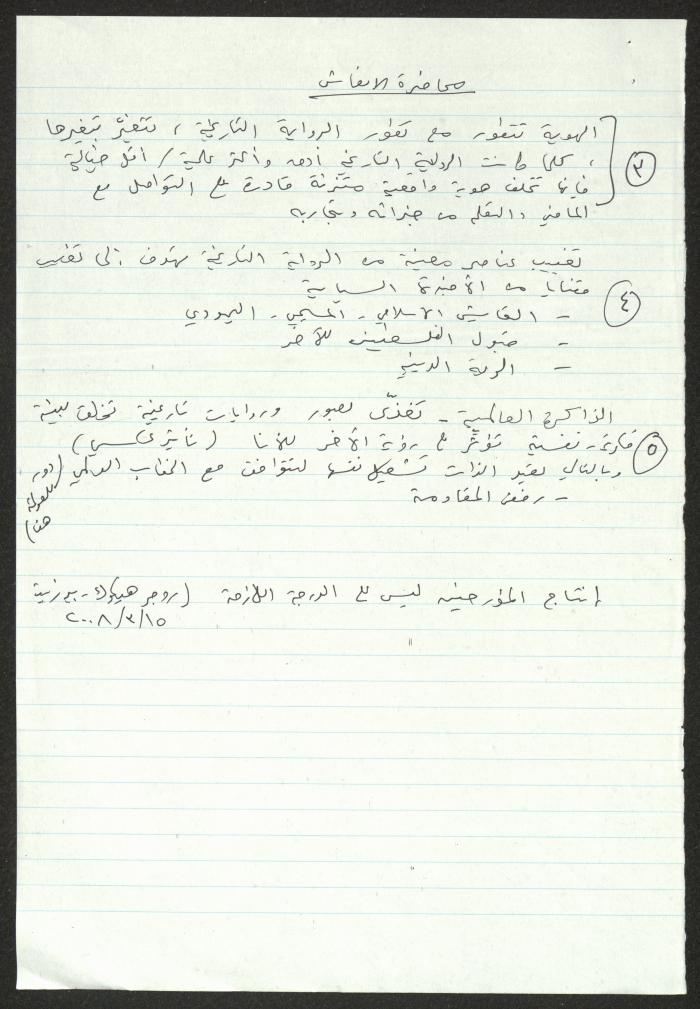 محاضرة الانعاش
الهوية تتطور مع تطور الرواية التاريخية ، تتغيّر بتغيرها
٣
، كلما كانت الرواية التاريخية أدق وأكثر علمية / أقل خيالية
فإنها تخلف هوية واقعية متزنة قادرة على التواصل مع
الماضي والتعلم من خبراته وتجاربه
تغييب عناصر معينة من الرواية التاريخية يهدف إلى تغييب
٤
قضايا من الأجندة السياسية
- التعايش الاسلامي - المسيحي - اليهودي
- قبول الفلسطينيين للآخر
- الدينية
الذاكرة العالمية - تغذّى بصور وروايات تاريخية تخلق بيئة
٥
- نفسية تؤثر على رؤية الآخر للأنا (تأثير عكسي)
وبالتالي يعيد الذات تشكيل نفسها لتتوافق مع الخطاب العالمي (دور
للعولمة
هنا)
- رفض المقاومة
إنتاج المؤرخين ليس على الدرجة اللازمة (روجر هيكوك - بيرزيت
٢٠٠٨/٣/١٥